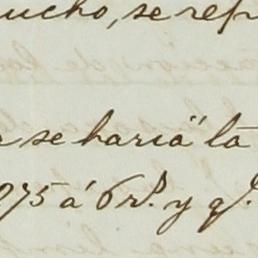 ucho, se refr
se haria" la
075 á 6 rs. y q